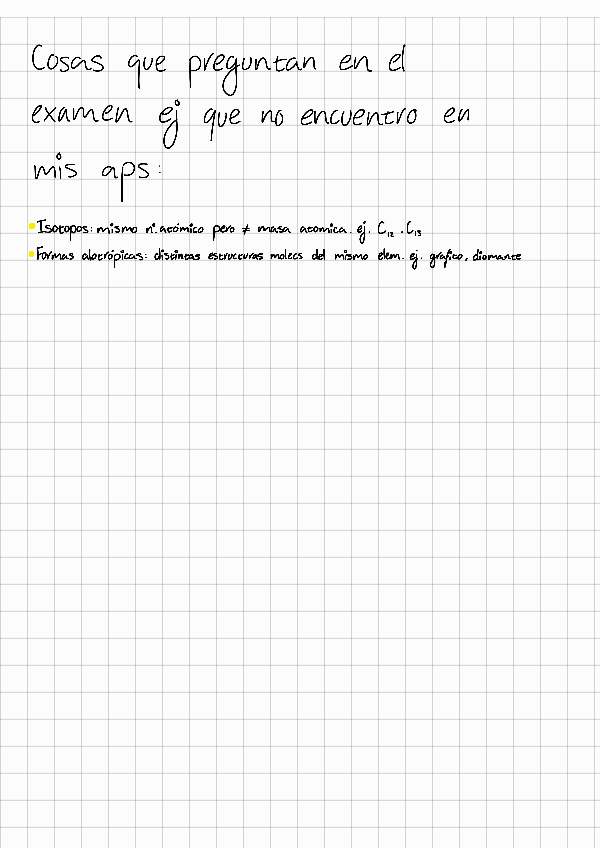 Cosas que preguntan en el
examen ej que no encuentro en
mis aps:
Isotopos: mismo nº. atómico pero ≠ masa atomica. ej. C₁₂ . C₁₃
Formas alotrópicas: distintas estructuras molecs del mismo elem. ej. grafico, diamante